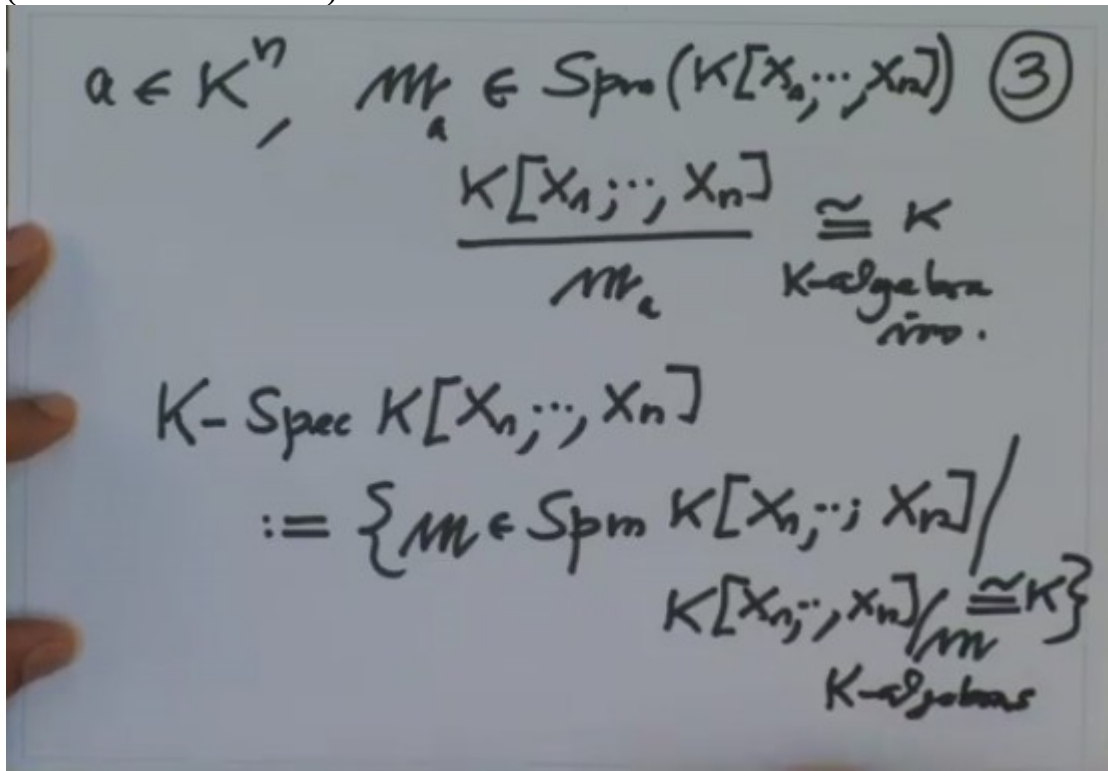 a ∈ Kⁿ, 𝔪ₐ ∈ Spm(K[X₁,⋯,Xₙ]) ③
K[X₁,⋯,Xₙ]
𝔪ₐ
≅ K
K-algebra
iso.
K-Spec K[X₁,⋯,Xₙ]
:= {𝔪 ∈ Spm K[X₁,⋯,Xₙ] /
K[X₁,⋯,Xₙ]/𝔪 ≅ K}
K-algebras